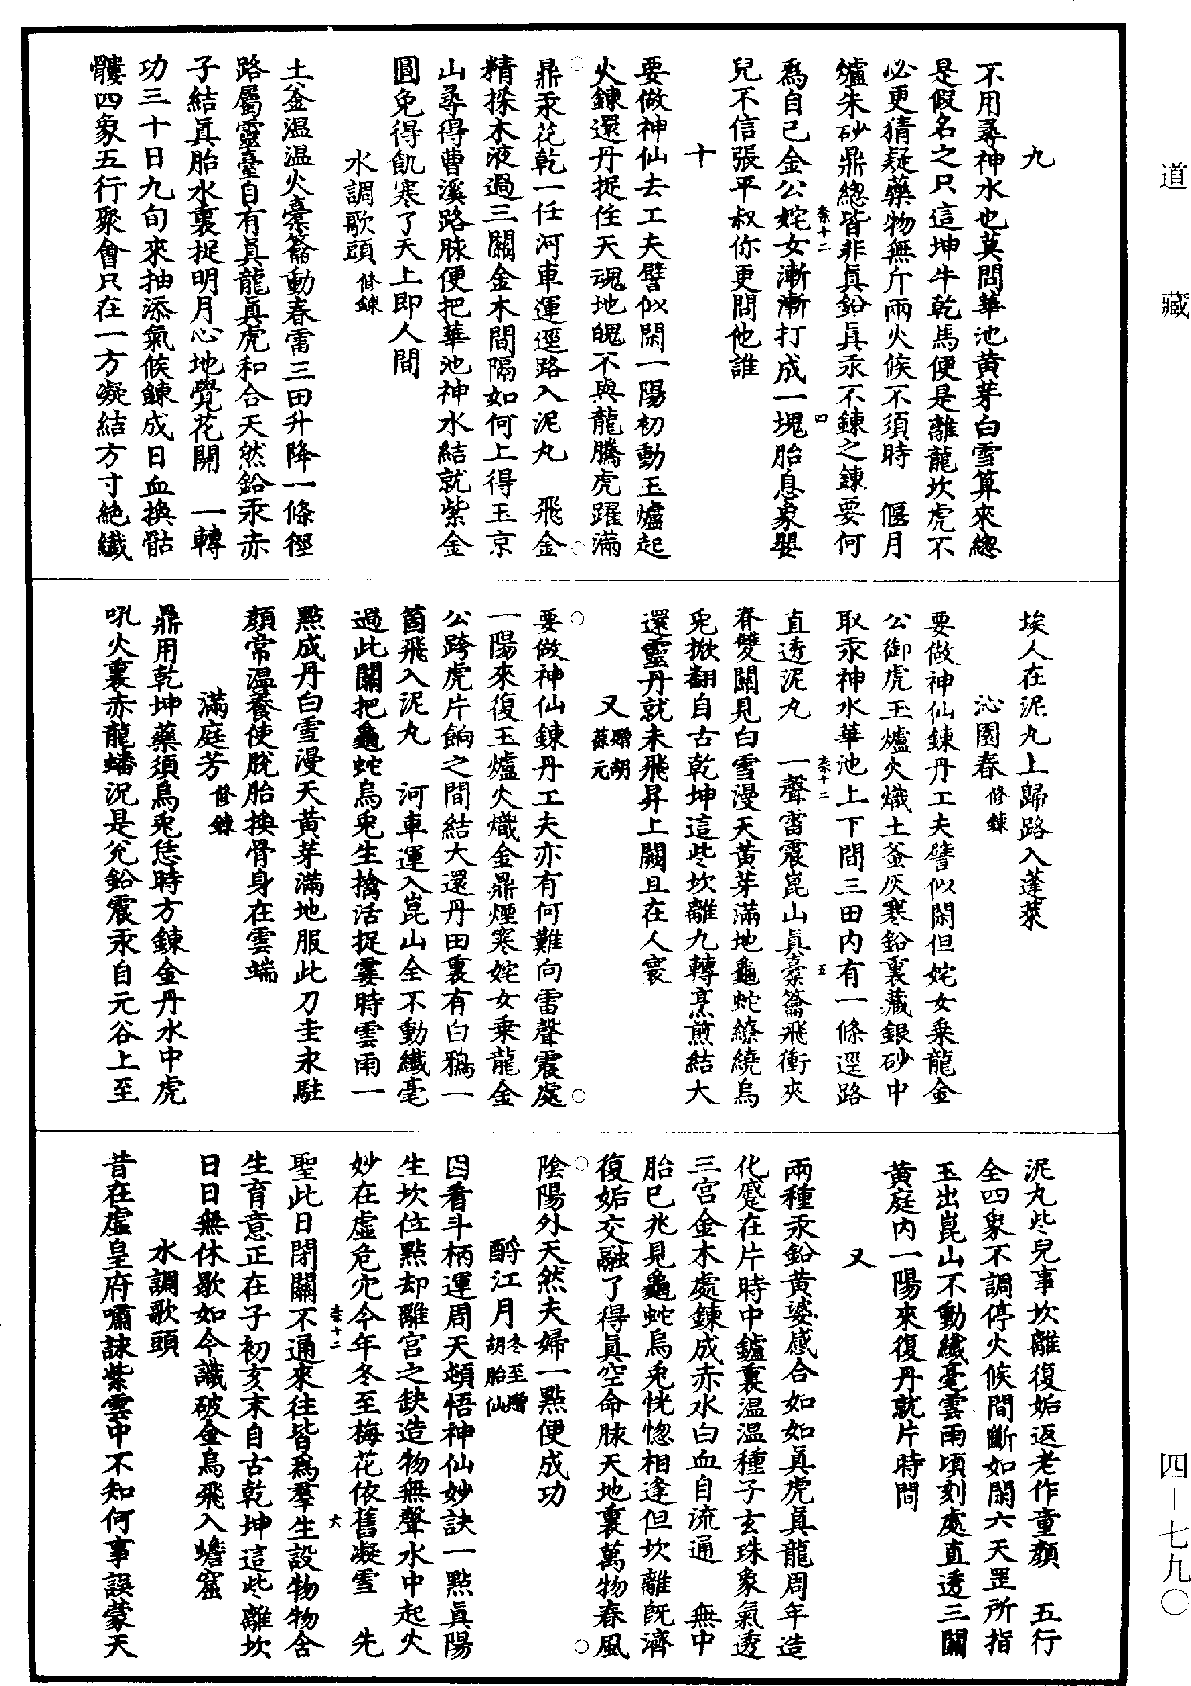 道藏
四－七九〇
九
不用尋神水也莫問華池黃芽白雪算來總
是假名之只這坤牛乾馬便是離龍坎虎不
必更猜疑藥物無斤兩火候不須時　偃月
爐朱砂鼎總皆非眞鉛眞汞不鍊之鍊要何
爲自己金公姹女漸漸打成一塊胎息象嬰
兒不信張平叔你更問他誰
十
要做神仙去工夫譬似閑一陽初動玉爐起
火鍊還丹捉住天魂地魄不與龍騰虎躍滿
鼎汞花乾一任河車運逕路入泥丸　飛金
精採木液過三關金木間隔如何上得玉京
山尋得曹溪路脉便把華池神水結就紫金
圓免得飢寒了天上即人間
水調歌頭修鍊
土釜溫溫火橐籥動春雷三田升降一條徑
路屬靈臺自有眞龍眞虎和合天然鉛汞赤
子結眞胎水裏捉明月心地覺花開　一轉
功三十日九旬來抽添氣候鍊成日血換骷
髏四象五行聚會只在一方凝結方寸絶纖
埃人在泥丸上歸路入蓬萊
沁園春修鍊
要做神仙鍊丹工夫譬似閑但姹女乘龍金
公御虎玉爐火熾土釜灰寒鉛裏藏銀砂中
取汞神水華池上下間三田內有一條逕路
直透泥丸　一聲雷震崑山眞橐籥飛衝夾
脊雙關見白雪漫天黃芽滿地龜蛇繚繞烏
兎掀翻自古乾坤這些坎離九轉烹煎結大
還靈丹就未飛昇上闕且在人寰
又贈胡葆元
要做神仙鍊丹工夫亦有何難向雷聲震處
一陽來復玉爐火熾金鼎煙寒姹女乘龍金
公跨虎片餉之間結大還丹田裏有白鴉一
箇飛入泥丸　河車運入崑山全不動纖毫
過此關把龜蛇烏兎生擒活捉霎時雲雨一
點成丹白雪漫天黃芽滿地服此刀圭永駐
顏常溫養使脫胎換骨身在雲端
滿庭芳修鍊
鼎用乾坤藥須烏兎恁時方鍊金丹水中虎
吼火裏赤龍蟠況是兊鉛震汞自元谷上至
泥丸些兒事坎離復姤返老作童顏　五行
全四象不調停火候間斷如閑六天罡所指
玉出崑山不動纖毫雲雨頃刻處直透三關
黃庭內一陽來復丹就片時間
又
兩種汞鉛黃婆感合如如眞虎眞龍周年造
化蹙在片時中鑪裏溫溫種子玄珠象氣透
三宮金木處鍊成赤水白血自流通　無中
胎已兆見龜蛇烏兎恍惚相逢但坎離旣濟
復姤交融了得眞空命脉天地裏萬物春風
陰陽外天然夫婦一點便成功
酹江月冬至贈胡胎仙
因看斗柄運周天頓悟神仙妙訣一點眞陽
生坎位點却離宮之缺造物無聲水中起火
妙在虛危穴今年冬至梅花依舊凝雪　先
聖此日閉關不通來往皆爲羣生設物物含
生育意正在子初亥末自古乾坤這些離坎
日日無休歇如今識破金烏飛入蟾窟
水調歌頭
昔在虛皇府嘯詠紫雲中不知何事誤蒙天